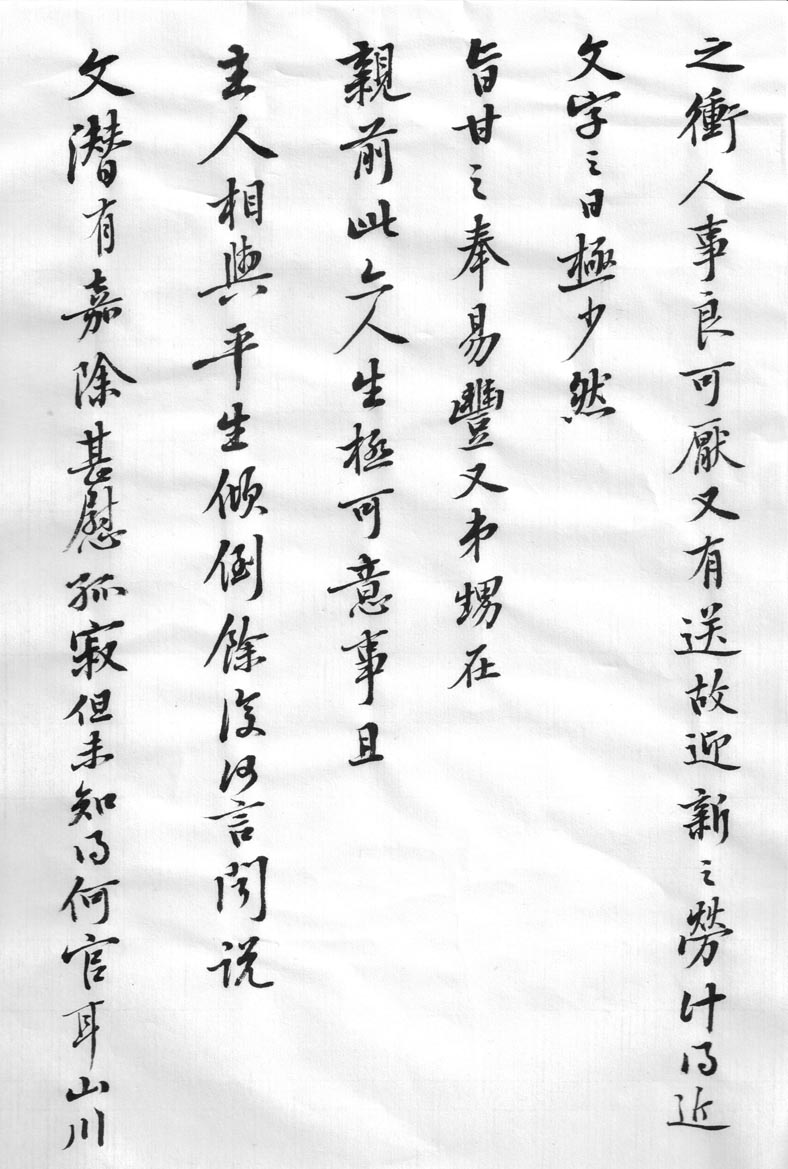 之衝人事良可厭又有送故迎新之勞計得近
文字之日極少然
旨甘之奉易豐又弟甥在
親前此亦人生極可意事且
主人相與平生傾倒餘復何言聞說
文潛有嘉除甚慰孤寂但未知得何官耳山川